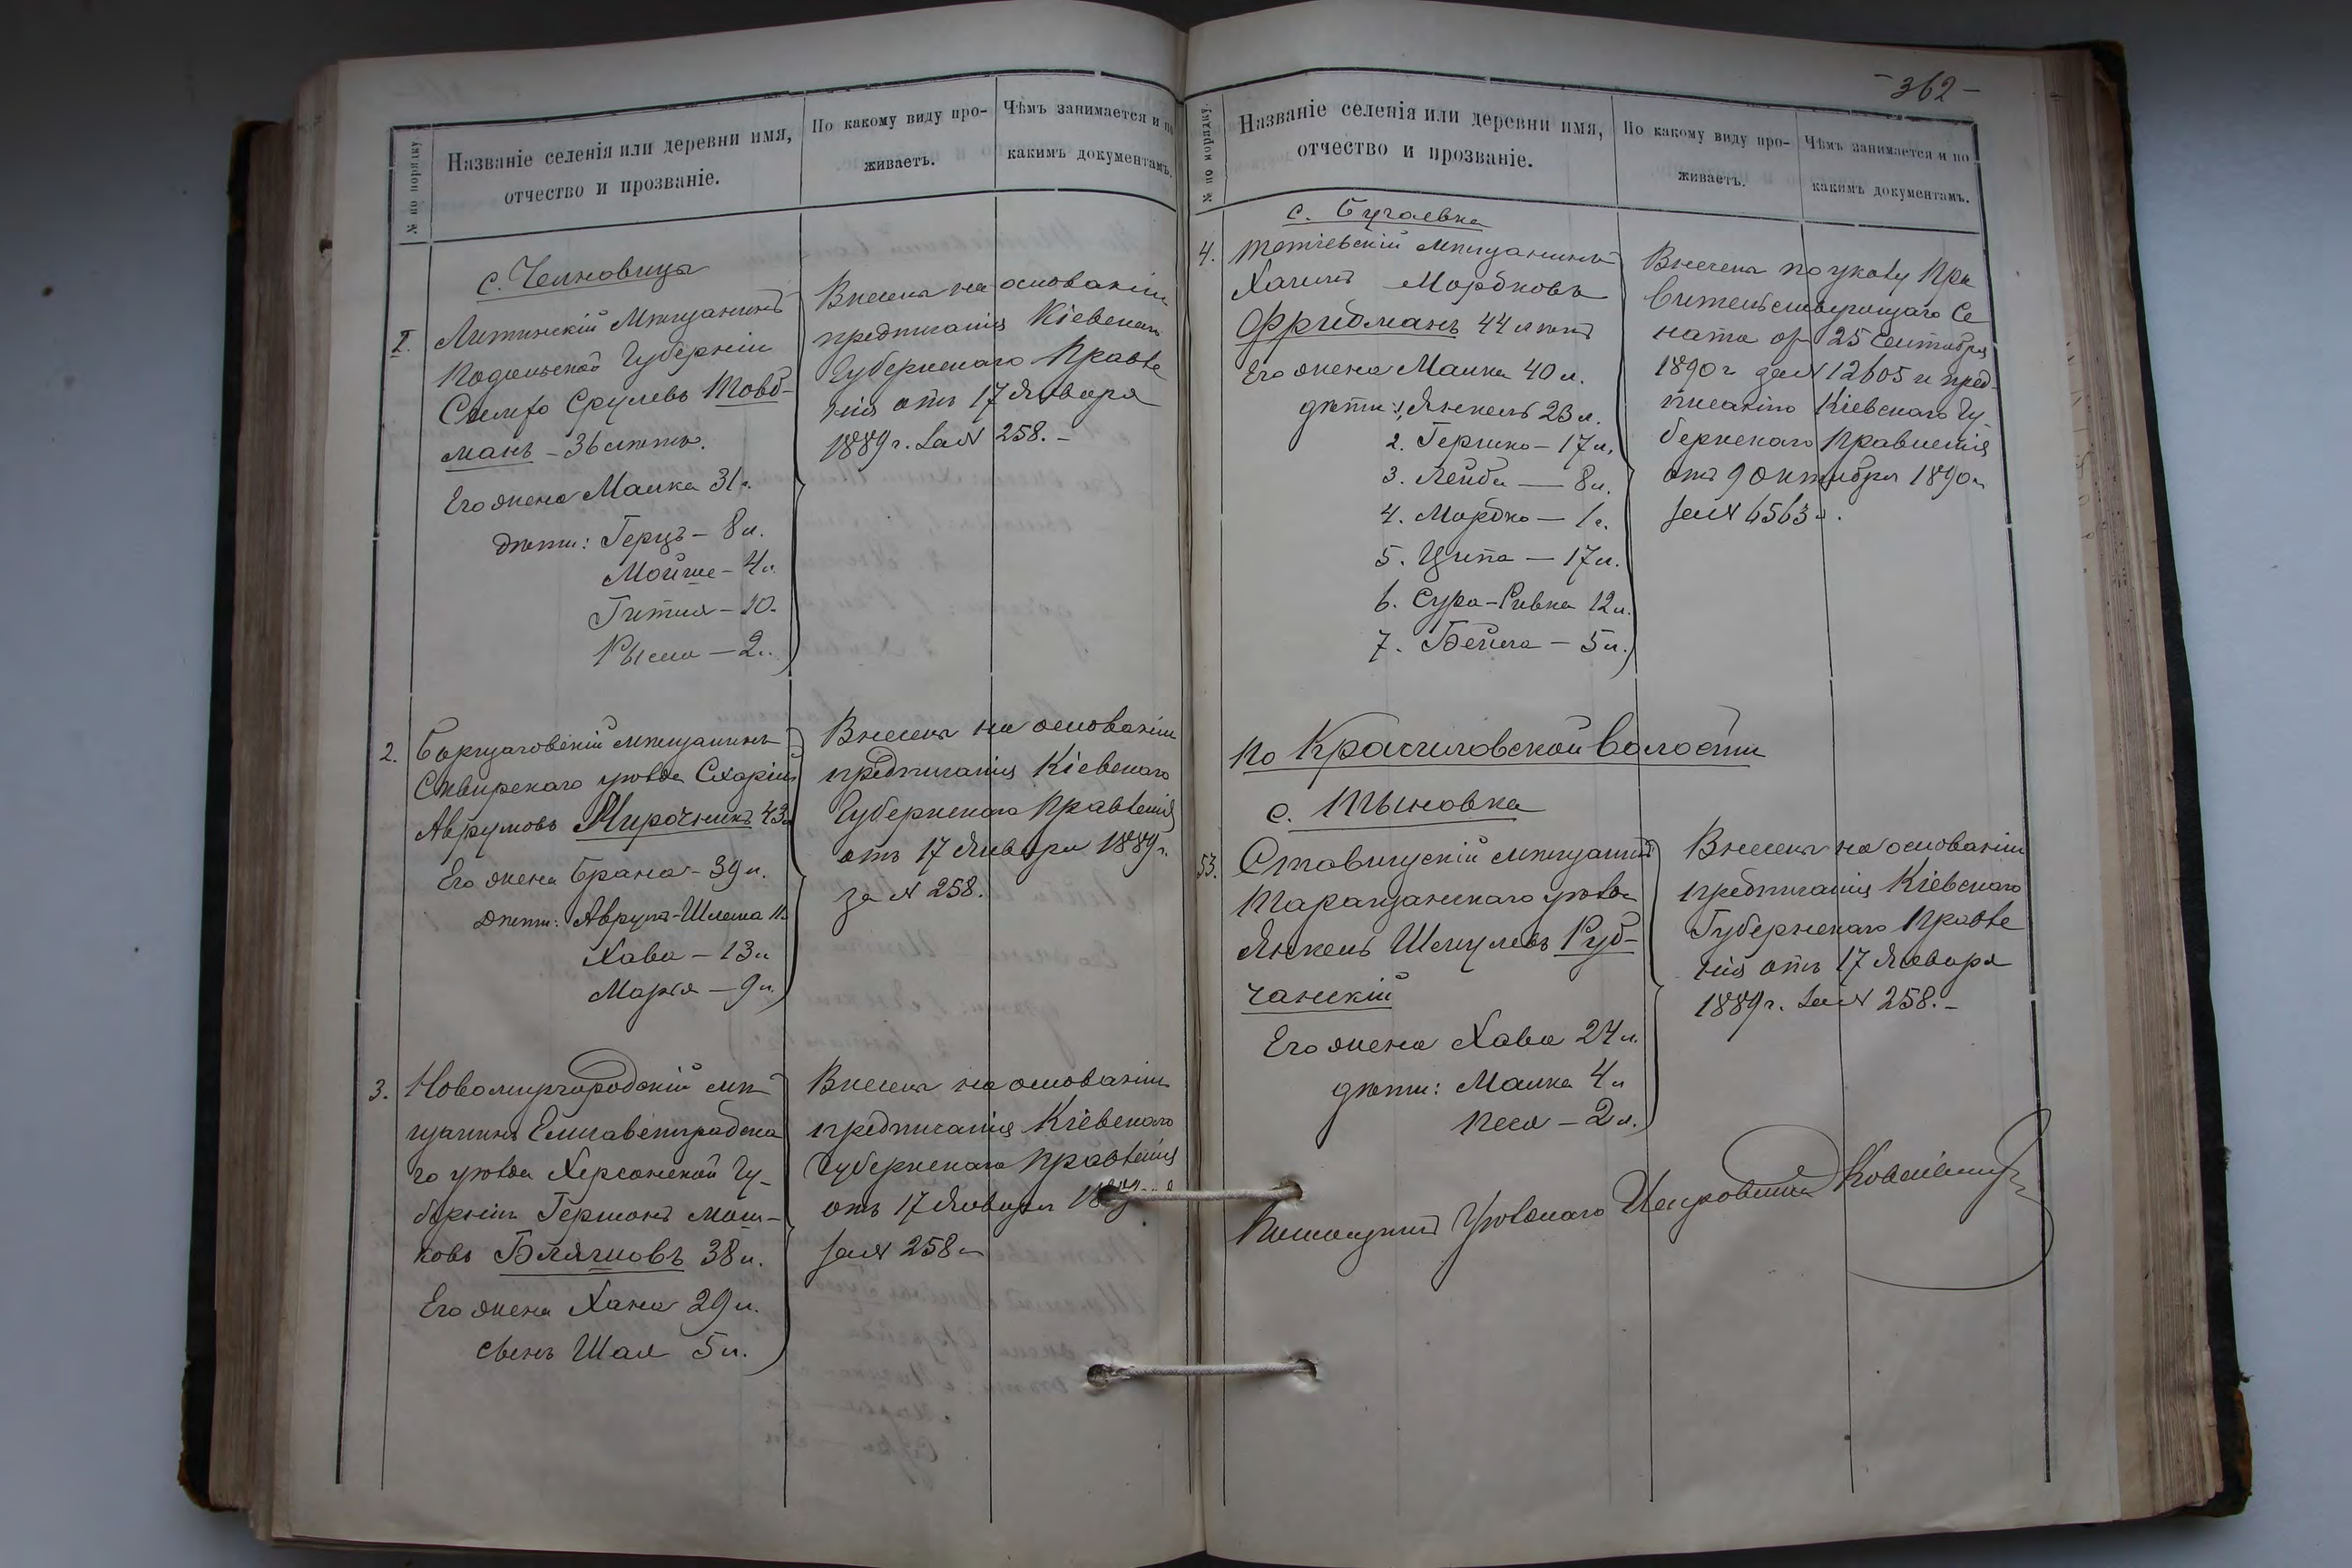 № по порядку
Названіе селенія или деревни имя,
отчество и прозваніе.
По какому виду про-
живаетъ.
Чѣмъ занимается и по
какимъ документамъ.
с. Челновица
1.
Литинскій Мѣщанинъ
Подольской Губерніи
Срулевъ Товб-
манъ - 36 лѣтъ.
Его жена Малка 31 г.
дѣти: Герцъ - 8 л.
Мойше - 4 л.
Гитля - 10.
Рыся - 2 л.
Внесенъ на основаніи
предписанія Кіевскаго
Губернскаго Правле
нія отъ 17 Января
1889 г. за № 258. -
2.
Борщаговскій мѣщанинъ
Сквирскаго уѣзда
Аврумовъ Мирочникъ 43 л
Его жена Брана - 39 л.
Дѣти: Аврумъ-Шлема 11
Хава - 13 л
Марья - 9 л.
Внесенъ на основаніи
предписанія Кіевскаго
Губернскаго Правленія
отъ 17 Января 1889 г.
за № 258.
3.
Новомиргородскій мѣ
щанинъ Елисаветградска
го уѣзда Херсонской Гу-
берніи Гершонъ Мош-
ковъ Бляховъ 38 л.
Его жена Хана 29 л.
сынъ Шая 5 л.
Внесенъ на основаніи
предписанія Кіевскаго
Губернскаго Правленія
отъ 17 Января 1889
за № 258
- 362 -
№ по порядку.
Названіе селенія или деревни имя,
отчество и прозваніе.
По какому виду про-
живаетъ.
Чѣмъ занимается и по
какимъ документамъ.
с. Бугаевка
4.
Тетіевскій мѣщанинъ
Хаимъ Мордковъ
Фридманъ 44 лѣтъ
Его жена Малка 40 л.
дѣти: 1. Янкель 23 л.
2. Гершко - 17 л.
3. Лейба - 8 л.
4. Мордко - 1 г.
5. Ципа - 17 л.
6. Сура-Ривка 12 л.
7. Бейла - 5 л.
Внесенъ по указу Пра
вительствующаго Се
ната от 25 Сентября
1890 г за № 12605 и пред-
писанію Кіевскаго Гу-
бернскаго Правленія
отъ 9 Октября 1890 г
за № 6563.
По Красиловской волости
с. Тыновка
53.
Ставищскій мѣщанинъ
Таращанскаго уѣзда
Янкель Шмулевъ Руд-
чанскій
Его жена Хава 24 л.
дѣти: Малка 4 л
Песя - 2 л.
Внесенъ на основаніи
предписанія Кіевскаго
Губернскаго Правле
нія отъ 17 Января
1889 г. за № 258. -
Помощникъ Уѣзднаго Исправника